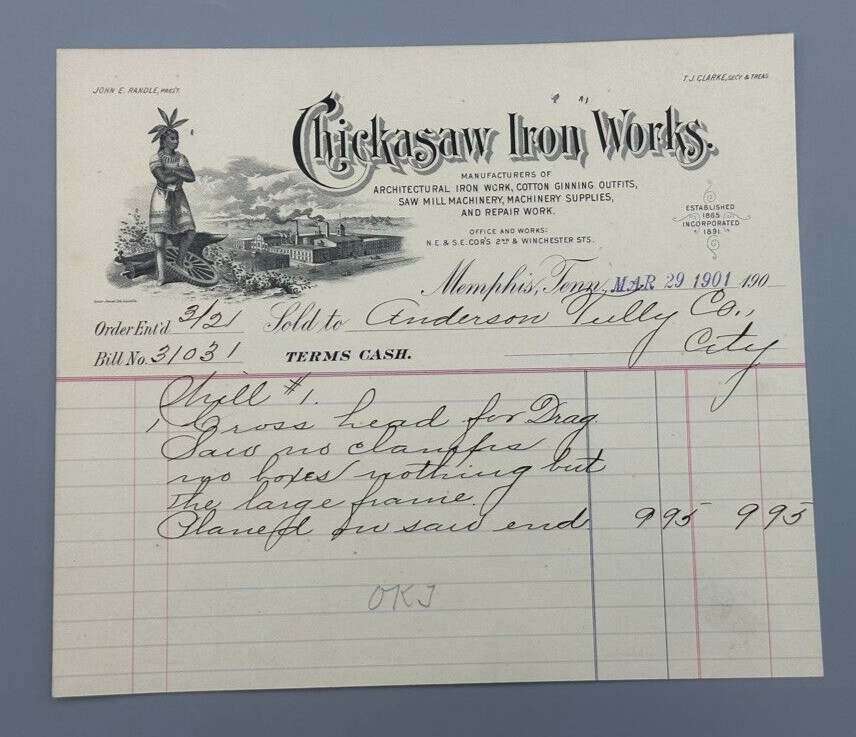 JOHN E. RANDLE, PRES'T.
T.J. CLARKE, SECY & TREAS.
Chickasaw Iron Works.
MANUFACTURERS OF
ARCHITECTURAL IRON WORK, COTTON GINNING OUTFITS,
SAW MILL MACHINERY, MACHINERY SUPPLIES,
AND REPAIR WORK.
OFFICE AND WORKS:
N.E. & S.E. COR'S 2ND & WINCHESTER STS.
ESTABLISHED
1865
INCORPORATED
1891.
Memphis, Tenn, MAR 29 1901 190
Order Ent'd 3/21 Sold to Anderson Tully Co.,
Bill No. 31031 TERMS CASH. City
Mill #1.
1 Cross head for Drag
Saw no clamps
no boxes nothing but
the large frame.
Planed on saw end 9 95 9 95
OKJ